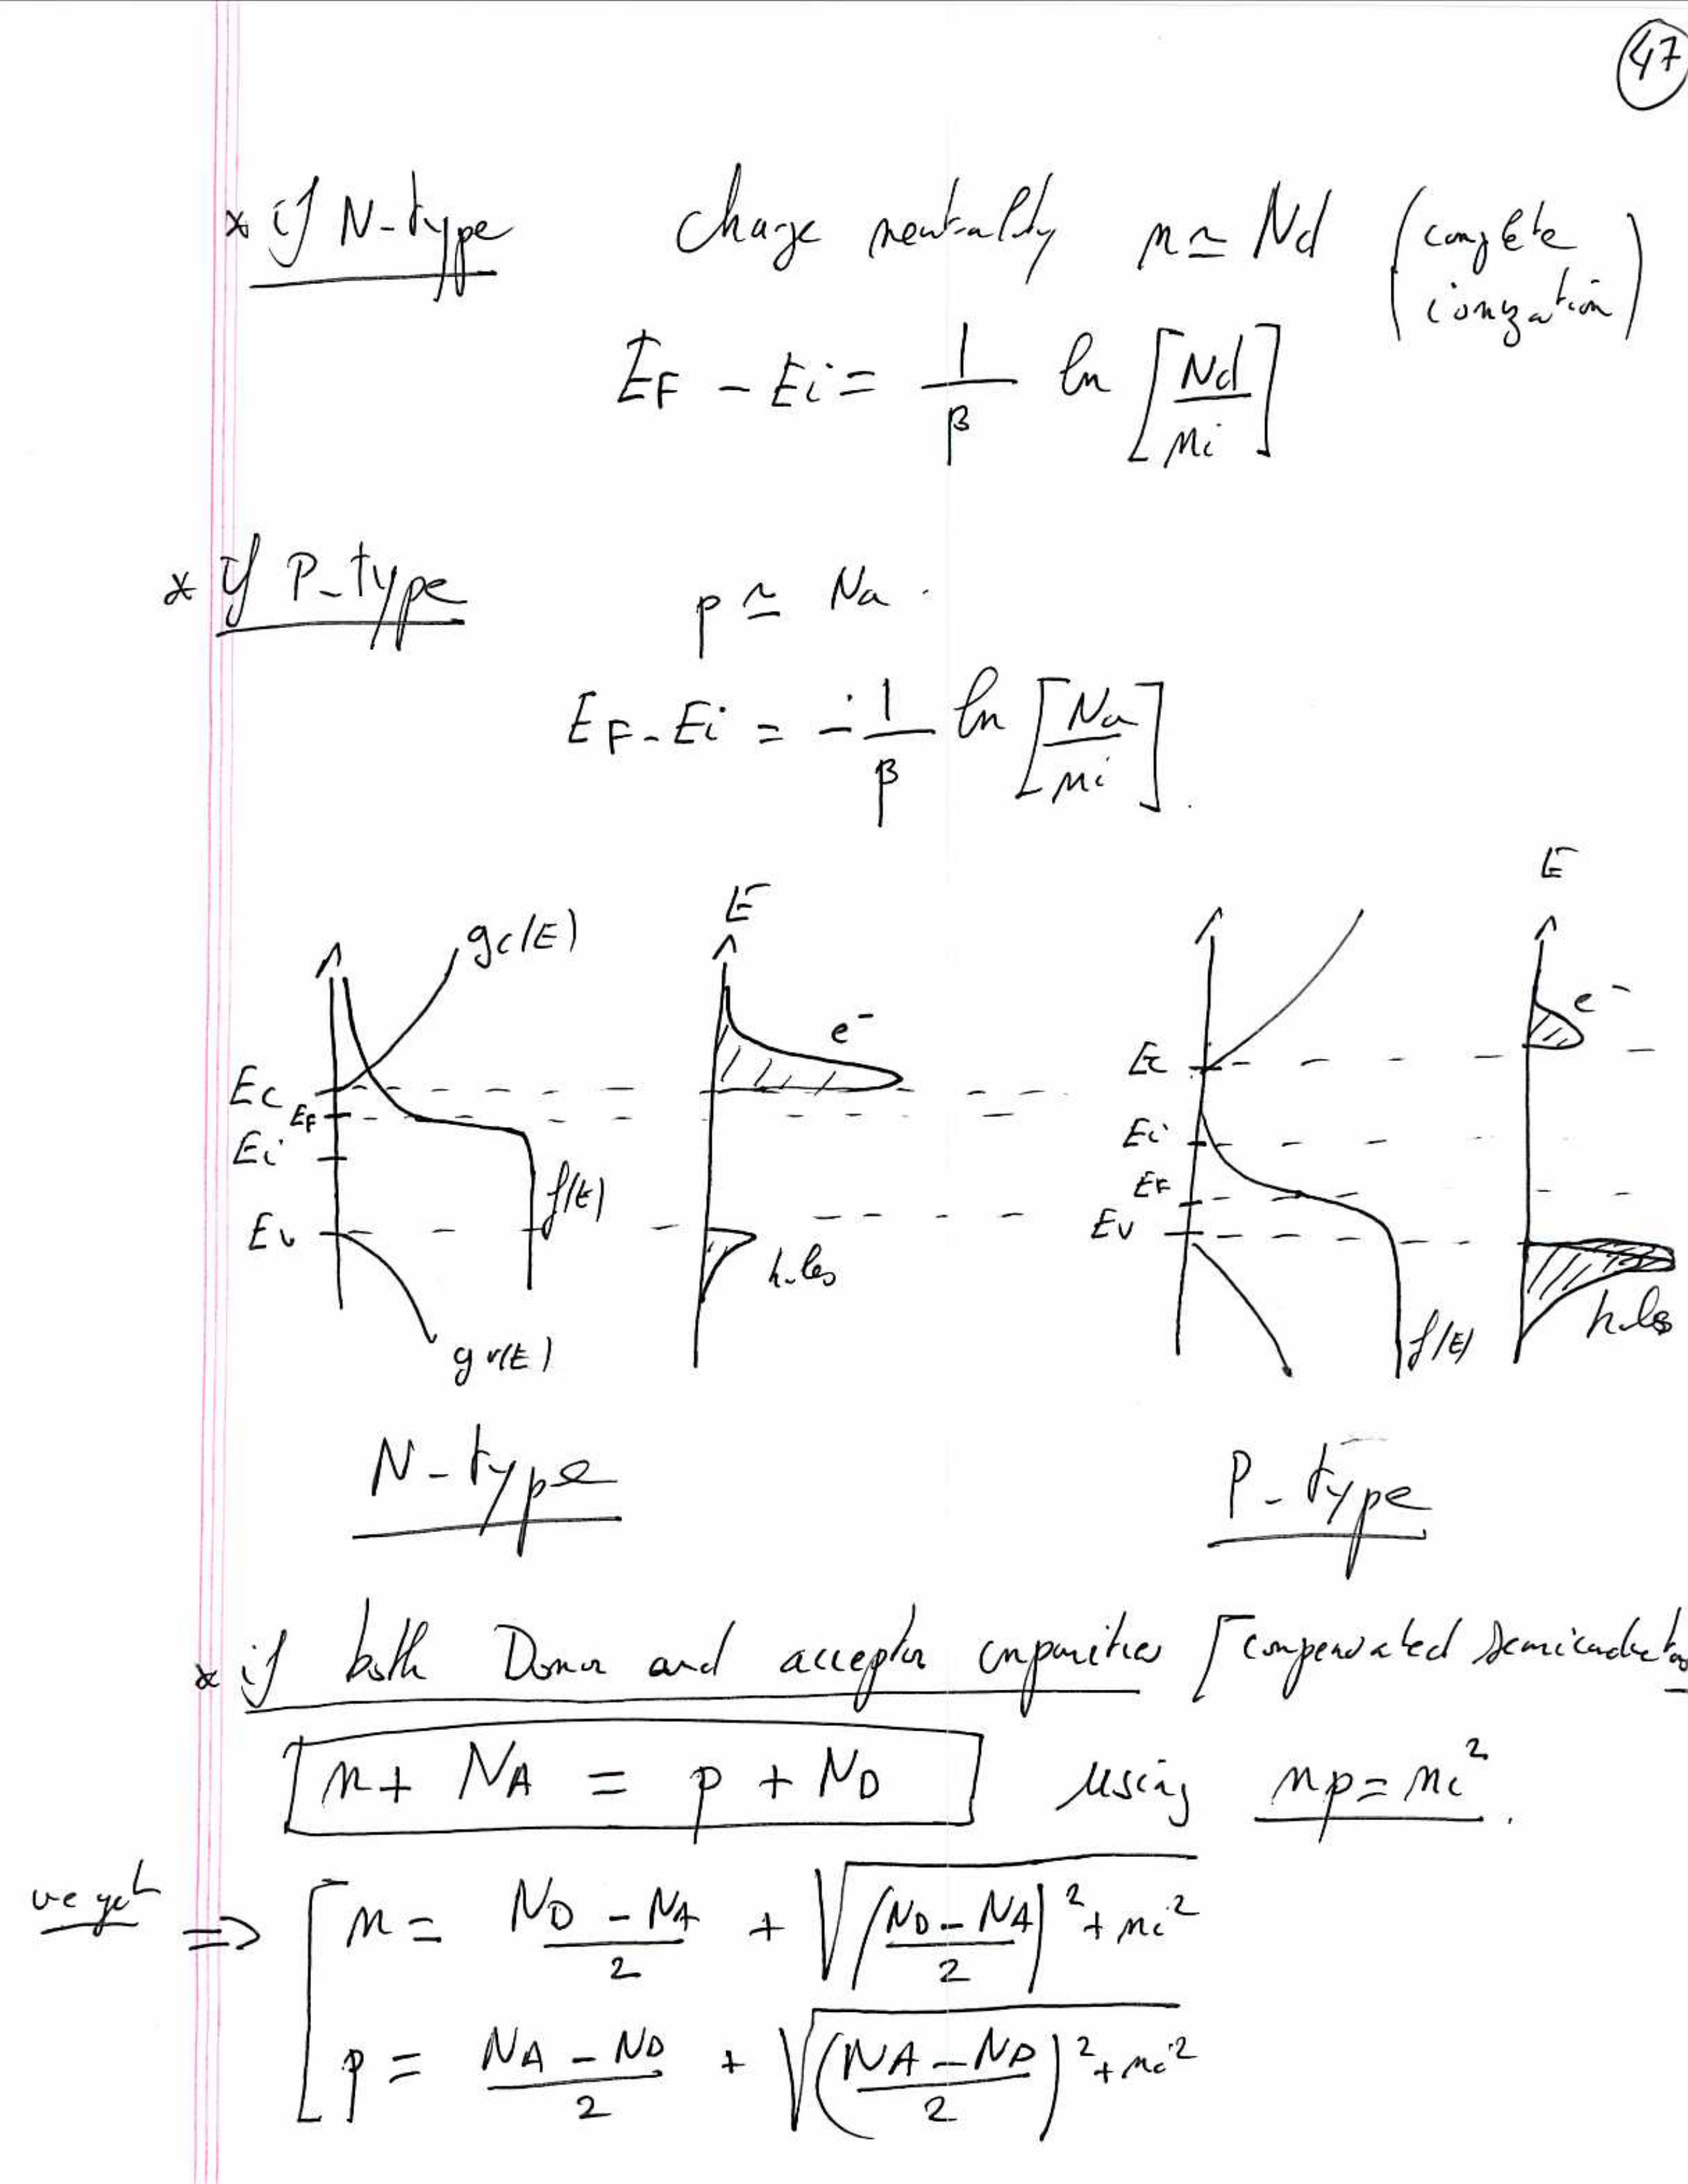 47
* if N-type charge neutrality n ≃ Nd (complete
ionization)
EF - Ei = 1/β ln [Nd/ni]
* if P-type p ≃ Na .
EF - Ei = - 1/β ln [Na/ni] .
E E
gc(E)
e⁻ e⁻
Ec Ec
EF
Ei Ei
f(E) EF
Ev Ev
holes holes
gv(E) f(E)
N-type P-type
* if both Donor and acceptor impurities [compensated semiconductor
n + NA = p + ND using np = ni² .
we get ⇒ n = (ND - NA)/2 + √(((ND - NA)/2)² + ni²)
p = (NA - ND)/2 + √(((NA - ND)/2)² + ni²)